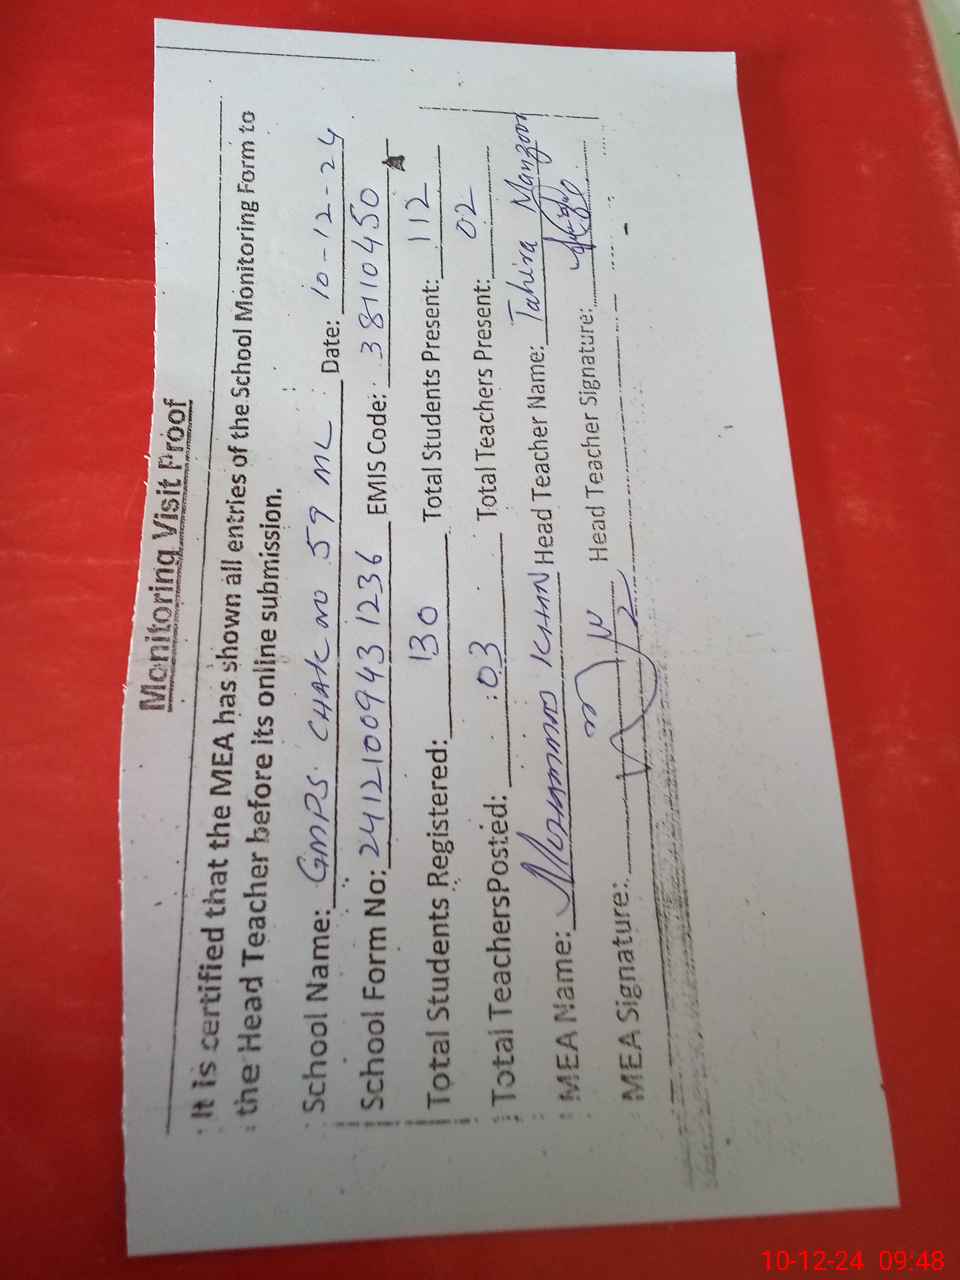 Monitoring Visit Proof
It is certified that the MEA has shown all entries of the School Monitoring Form to
the Head Teacher before its online submission.
School Name: GMPS CHAK NO 59 ML Date: 10-12-24
School Form No: 24121009431236 EMIS Code: 38110450
Total Students Registered: 130 Total Students Present: 112
Total TeachersPosted: 03 Total Teachers Present: 02
MEA Name: Muhammad KHAN Head Teacher Name: Tahira Manzoor
MEA Signature: Head Teacher Signature:
10-12-24 09:48